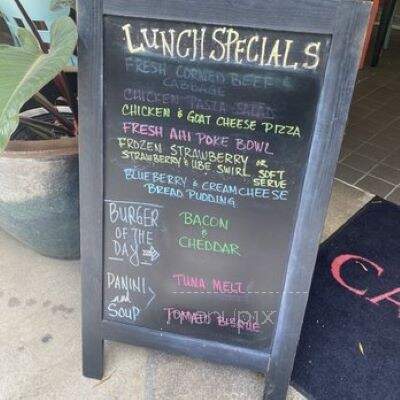 LUNCH SPECIALS
FRESH CORNED BEEF &
CABBAGE
CHICKEN PASTA SALAD
CHICKEN & GOAT CHEESE PIZZA
FRESH AHI POKE BOWL
FROZEN STRAWBERRY OR
STRAWBERRY & UBE SWIRL SOFT
SERVE
BLUEBERRY & CREAM CHEESE
BREAD PUDDING
BURGER
OF THE
DAY
BACON
&
CHEDDAR
PANINI
and
SOUP
TUNA MELT
TOMATO BISQUE
CA